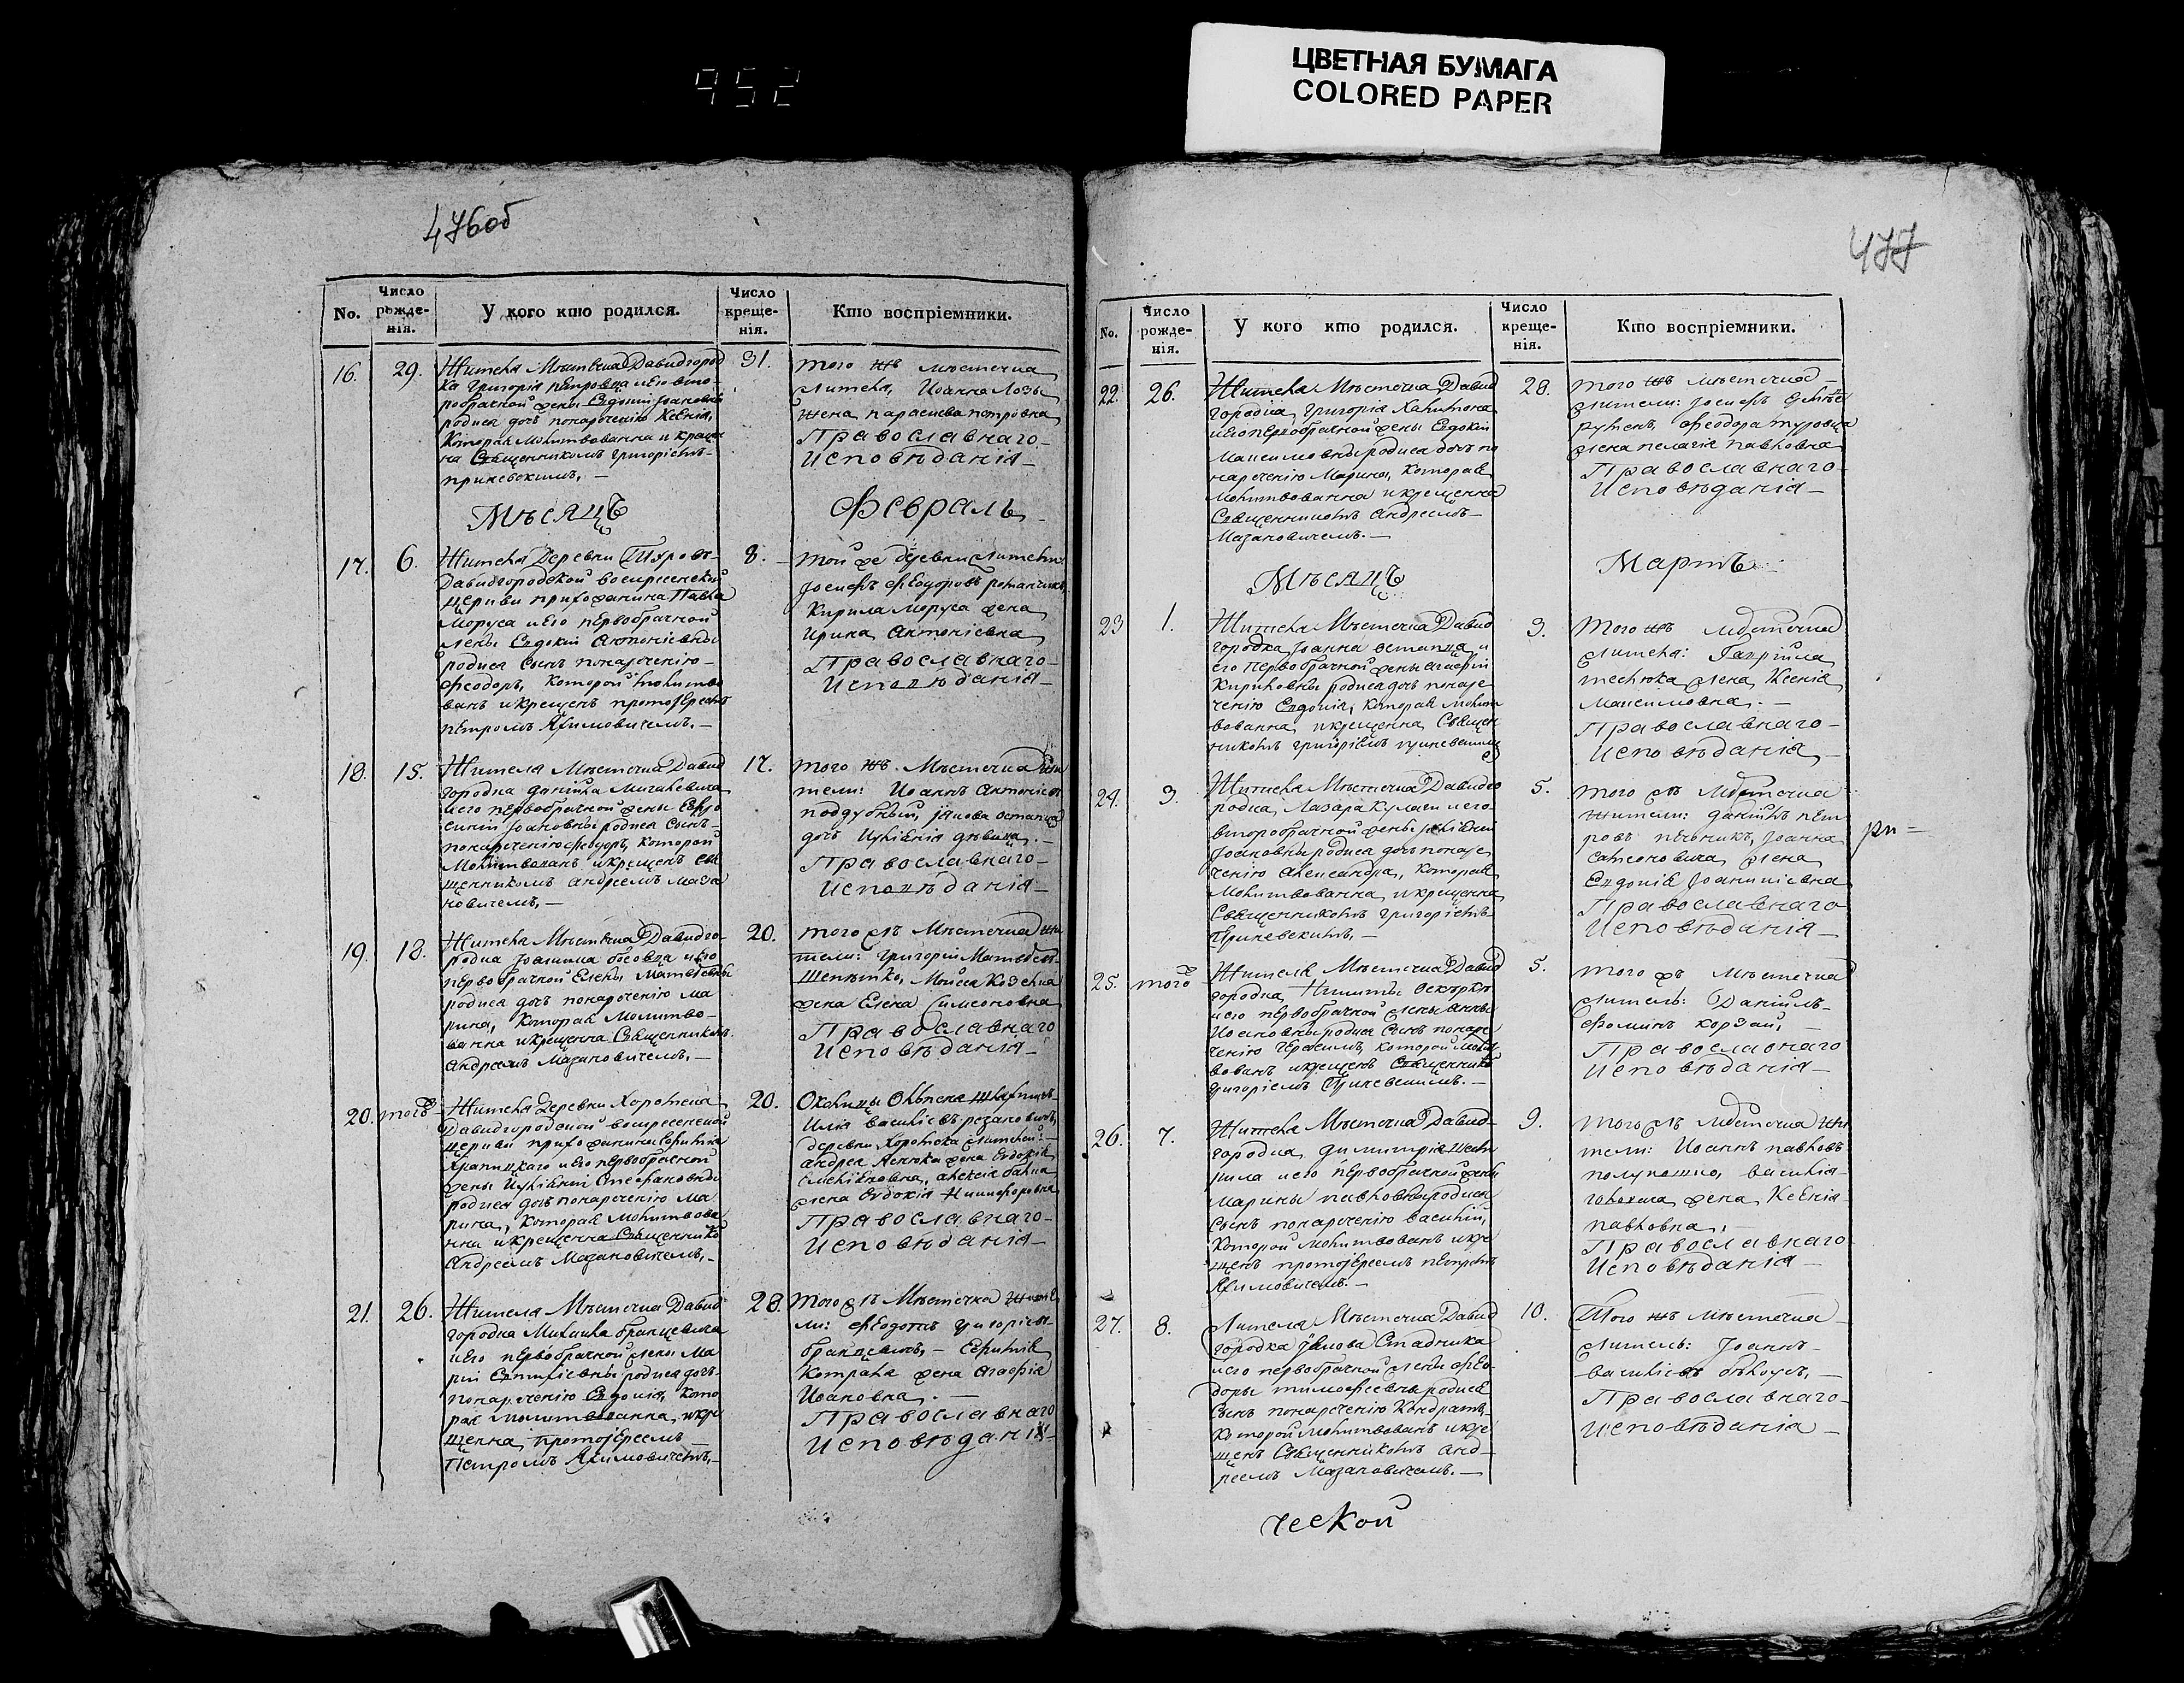 952
ЦВЕТНАЯ БУМАГА
COLORED PAPER
476об
No.
Число рожденія.
У кого кто родился.
Число крещенія.
Кто воспріемники.
16.
29.
Жителя Мѣстечка Давидгород
ка Григорія Петровца и его вто-
робрачной жены Евдокіи Іоановны
родися дочь понареченію Ксенія,
Которая Молитвованна и креще
на Священникомъ Григоріемъ
31.
того жъ мѣстечка
жителя, Иоанна Лозы
жена параскева петровна
Православнаго
Исповѣданія
Мѣсяцъ
Февраль
17.
6.
Жителя Деревни
Давидгородской воскресенской
церкви прихожанина Павла
Моруса и его первобрачной
жены Евдокіи Антоніевны
родися сынъ понареченію
Феодоръ, Которой молитво
ванъ и крещенъ протоіереемъ
петромъ Якимовичемъ.
8.
той же деревни жители
Іосифъ Феодоровъ
Кирила Моруса жена
Ирина Антоніевна
Православнаго
Исповѣданія
18.
15.
Жителя Мѣстечка Давид
городка Даніила
и его первобрачной жены Евфро
синіи Іоановны родися сынъ
понареченію Феодоръ, Которой
Молитвованъ и крещенъ свя
щенникомъ Андреемъ Маза
новичемъ,
17.
того жъ Мѣстечка жи
тели: Иоаннъ Антоніевъ
поддубный, Іякова остапца
дочь девица
Православнаго
Исповѣданія
19.
18.
Жителя Мѣстечка Давидго-
родка Іоакима и его
первобрачной Елены Матвеевны
родися дочь понареченію Ма
рина, Которая Молитво-
ванна и крещенна Священникомъ
Андреемъ Мазановичемъ,
20.
того жъ Мѣстечка жи
тели: Григорій Матвеевъ
Моисея
жена Елена Симеоновна
Православнаго
Исповѣданія
20.
того
Жителя Деревни Хоромска
Давидгородской воскресенской
церкви прихожанина
и его первобрачной
жены Стефановны
родися дочь понареченію Ма
рина, Которая Молитвова
нна и крещенна Священнико
Андреемъ Мазановичемъ,
20.
Илія василіевъ
деревни Хоромска жителей:
Андрея жена Евдокія
жена Евдокія Никифоровна
Православнаго
Исповѣданія
21.
26.
Жителя Мѣстечка Давид
городка Михаила бранцевича
и его первобрачной жены Ма
ріи родися дочь
понареченію Евдокія, Кото
рая молитвованна, и кре
щенна протоіереемъ
Петромъ Якимовичемъ,
28.
Того жъ Мѣстечка жите
ли: Феодотъ григоріевъ
бранцевичъ,
жена Агафія
Ивановна.
Православнаго
Исповѣданія
477
No.
Число рожденія.
У кого кто родился.
Число крещенія.
Кто воспріемники.
22.
26.
Жителя Мѣстечка Давид
городка, Григорія
и его первобрачной жены Евдокіи
Максимовны родися дочь по
нареченію Марина, Которая
Молитвованна и крещенна
Священникомъ Андреемъ
Мазановичемъ.
28.
того жъ мѣстечка
жители: Іосифъ
Феодора туровца
жена пелагія павловна
Православнаго
Исповѣданія
Мѣсяцъ
Мартъ
23
1.
Жителя Мѣстечка Давид
городка Іоанна остапца и
его первобрачной жены Агафіи
Кириловны родися дочь понаре
ченію Евдокія, Которая Молит
вованна и крещенна Священ
никомъ григоріемъ
3.
Того жъ мѣстечка
жителя: Гавріила
жена Ксенія
Максимовна.
Православнаго
Исповѣданія
24.
3.
Жителя Мѣстечка Давидго
родка, Лазара Кулаги и его
второбрачной жены
Іоановны родися дочь понаре
ченію Александра, Которая
Молитвованна и крещенна
Священникомъ Григоріемъ
5.
того жъ мѣстечка
жители: Даніилъ пет
ровъ печникъ, Іоанна
жена
Евдокія
Православнаго
Исповѣданія
25.
того
Жителя Мѣстечка Давид
городка, Никиты
и его первобрачной жены Анны
родися сынъ понаре
ченію Герасимъ, Которой моли
вованъ и крещенъ Священнико
григоріемъ
5.
того жъ Мѣстечка
житель: Даніилъ
Фоминъ корзай,
Православнаго
Исповѣданія
26.
7.
Жителя Мѣстечка Давид-
городка, Димитрія
и его первобрачной жены
Марины павловны родися
сынъ понареченію василій,
Которой Молитвованъ и кре
щенъ протоіереемъ петромъ
Якимовичемъ.
9.
того жъ мѣстечка жи
тели: Иоаннъ павловъ
василія
жена Ксенія
павловна,
Православнаго
Исповѣданія
27.
8.
Жителя Мѣстечка Давид
городка Якова Стадника
и его первобрачной жены Фео-
доры тимофеевны родися
сынъ понареченію Кондратъ,
Которой Молитвованъ и кре
щенъ Священникомъ Анд-
реемъ Мазановичемъ.
10.
Того жъ мѣстечка
житель: Іоаннъ
василіевъ
Православнаго
Исповѣданія
ческой